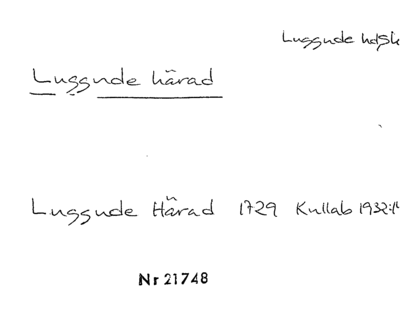 Luggude hdSk
Luggude härad
Luggude Härad 1729 Kullab 1932:14
Nr 21748